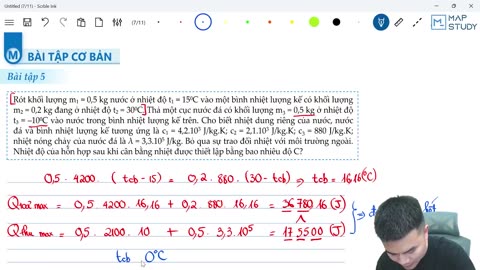 Untitled (7/11) - Scrble Ink
(7/11)
MAP
STUDY
M BÀI TẬP CƠ BẢN
Bài tập 5
Rót khối lượng m₁ = 0,5 kg nước ở nhiệt độ t₁ = 15⁰C vào một bình nhiệt lượng kế có khối lượng
m₂ = 0,2 kg đang ở nhiệt độ t₂ = 30⁰C. Thả một cục nước đá có khối lượng m₃ = 0,5 kg ở nhiệt độ
t₃ = –10⁰C vào nước trong bình nhiệt lượng kế trên. Cho biết nhiệt dung riêng của nước, nước
đá và bình nhiệt lượng kế tương ứng là c₁ = 4,2.10³ J/kg.K; c₂ = 2,1.10³ J/kg.K; c₃ = 880 J/kg.K;
nhiệt nóng chảy của nước đá là λ = 3,3.10⁵ J/kg. Bỏ qua sự trao đổi nhiệt với môi trường ngoài.
Nhiệt độ của hỗn hợp sau khi cân bằng nhiệt được thiết lập bằng bao nhiêu độ C?
0,5 . 4200 . (tcb - 15) = 0,2 . 880 . (30 - tcb) ⇒ tcb = 16,16 (°C)
Q toả max = 0,5 . 4200 . 16,16 + 0,2 . 880 . 16,16 = 36780,16 (J)
Q thu max = 0,5 . 2100 . 10 + 0,5 . 3,3.10⁵ = 175500 (J)
λ
tcb 0°C